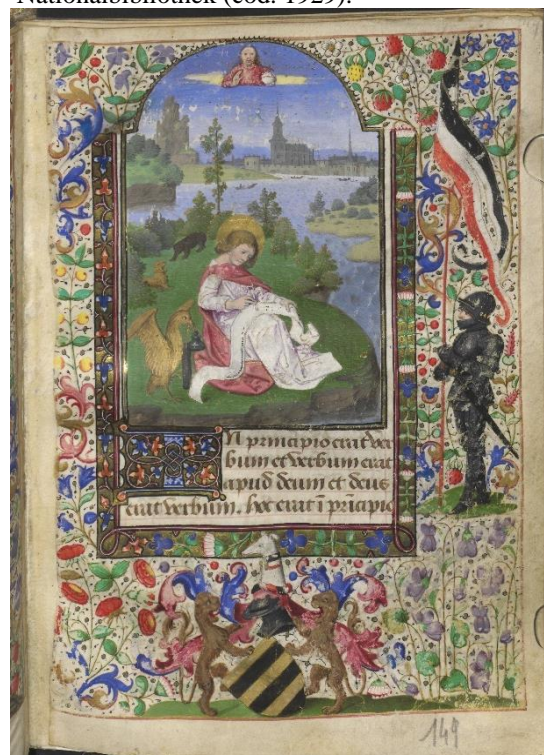 Nationalbibliothek (cod. 1929).
N principio erat ver
bum et verbum erat
apud deum et deus
erat verbum. hoc erat ī prīcipio
149